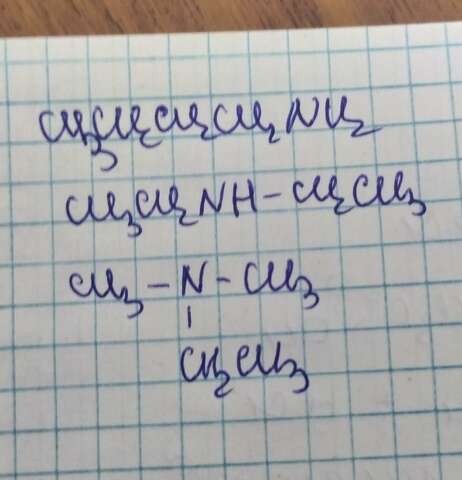 CH₃CH₂CH₂CH₂NH₂
CH₃CH₂NH-CH₂CH₃
CH₃-N-CH₃
|
CH₂CH₃